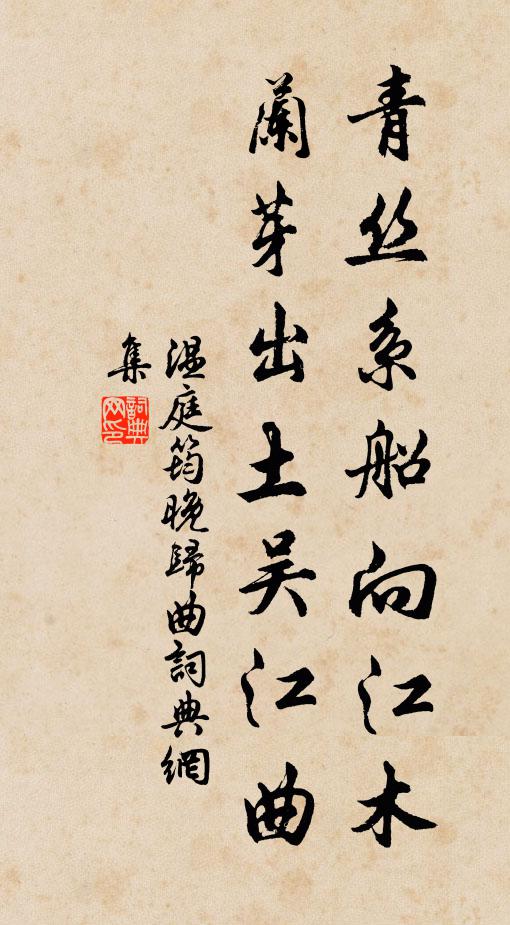 青丝系船向江木
蘭芽出土吴江曲
温庭筠晚歸曲詞典網
集
詞典网印